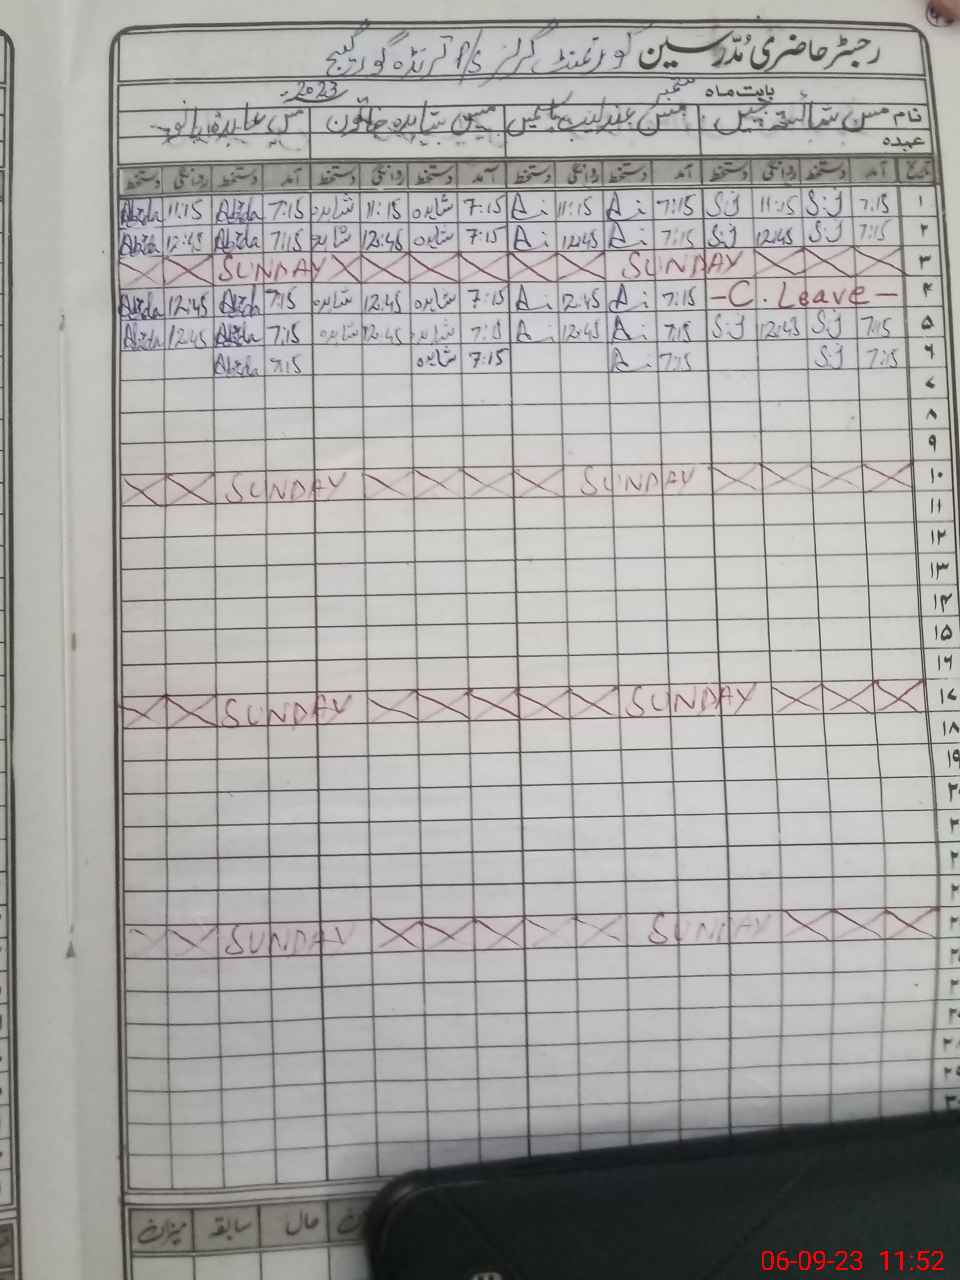 رجسٹر حاضری مُدّرسین گورنمنٹ گرلز P/S
بابت ماہ ستمبر 2023
نام مس شائستہ جبیں مس عندلیب یاسمین مس شاہدہ خاتون مس عابدہ بانو
عہدہ
تاریخ آمد دستخط روانگی دستخط آمد دستخط روانگی دستخط آمد دستخط روانگی دستخط آمد دستخط روانگی دستخط
۱ 7:15 S.J 11:15 S.J 7:15 A 11:15 A 7:15 شاہدہ 11:15 شاہدہ 7:15 Abida 11:15 Abida
۲ 7:15 S.J 12:45 S.J 7:15 A 12:45 A 7:15 شاہدہ 12:45 شاہدہ 7:15 Abida 12:45 Abida
۳ SUNDAY SUNDAY
۴ -C. Leave- 7:15 A 12:45 A 7:15 شاہدہ 12:45 شاہدہ 7:15 Abida 12:45 Abida
۵ 7:15 S.J 12:45 S.J 7:15 A 12:45 A 7:15 شاہدہ 12:45 شاہدہ 7:15 Abida 12:45 Abida
۶ 7:15 S.J 7:15 A 7:15 شاہدہ 7:15 Abida
۷
۸
۹
۱۰ SUNDAY SUNDAY
۱۱
۱۲
۱۳
۱۴
۱۵
۱۶
۱۷ SUNDAY SUNDAY
۱۸
۱۹
SUNDAY SUNDAY
۲۸
۲۹
حال سابقہ میزان
06-09-23 11:52